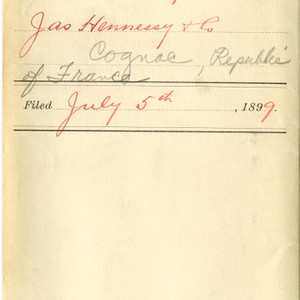 Jas Hennessy & Co
Cognac, Republic
of France
Filed July 5th, 1899.